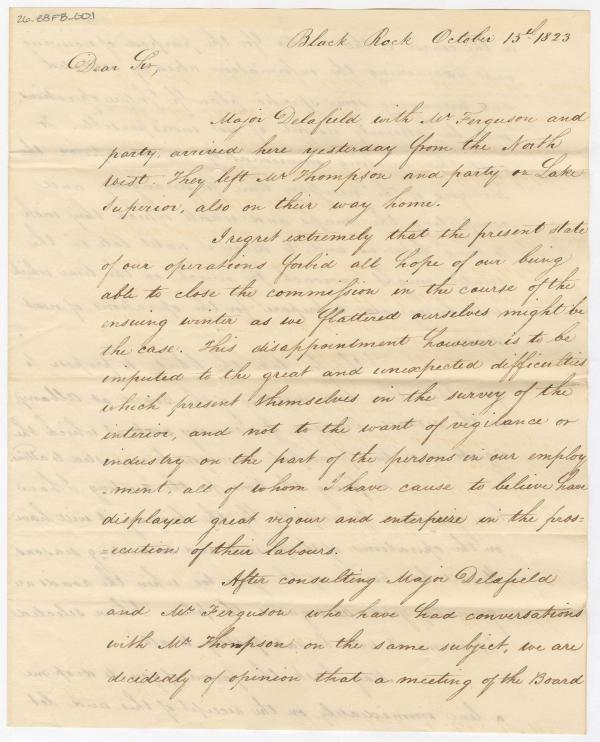 26-EBFB-001
Black Rock October 15th 1823
Dear Sir,
Major Delafield with Mr Ferguson and
party, arrived here yesterday from the North
West. They left Mr Thompson and party on Lake
Superior, also on their way home.
I regret extremely that the present state
of our operations forbid all hope of our being
able to close the commission in the course of the
ensuing winter as we flattered ourselves might be
the case. This disappointment however is to be
imputed to the great and unexpected difficulties
which present themselves in the survey of the
interior, and not to the want of vigilance or
industry on the part of the persons in our employ
-ment, all of whom I have cause to believe have
displayed great vigour and enterprize in the pros=
=ecution of their labours.
After consulting Major Delafield
and Mr Ferguson who have had conversations
with Mr Thompson on the same subject, we are
decidedly of opinion that a meeting of the Board